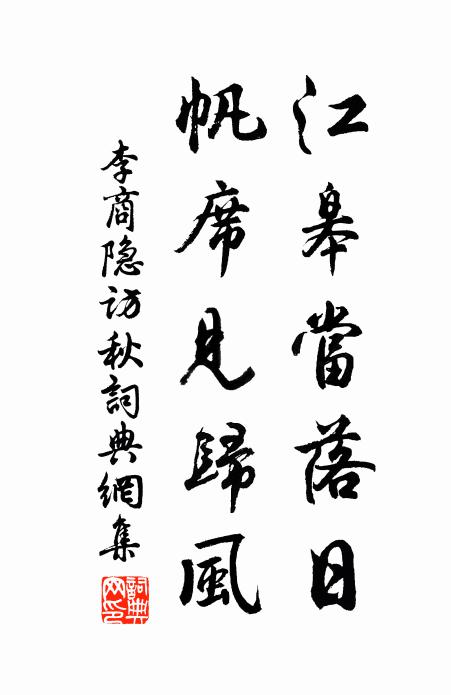 江皋當落日
帆席見歸風
李商隐访秋詞典網集
詞典網印